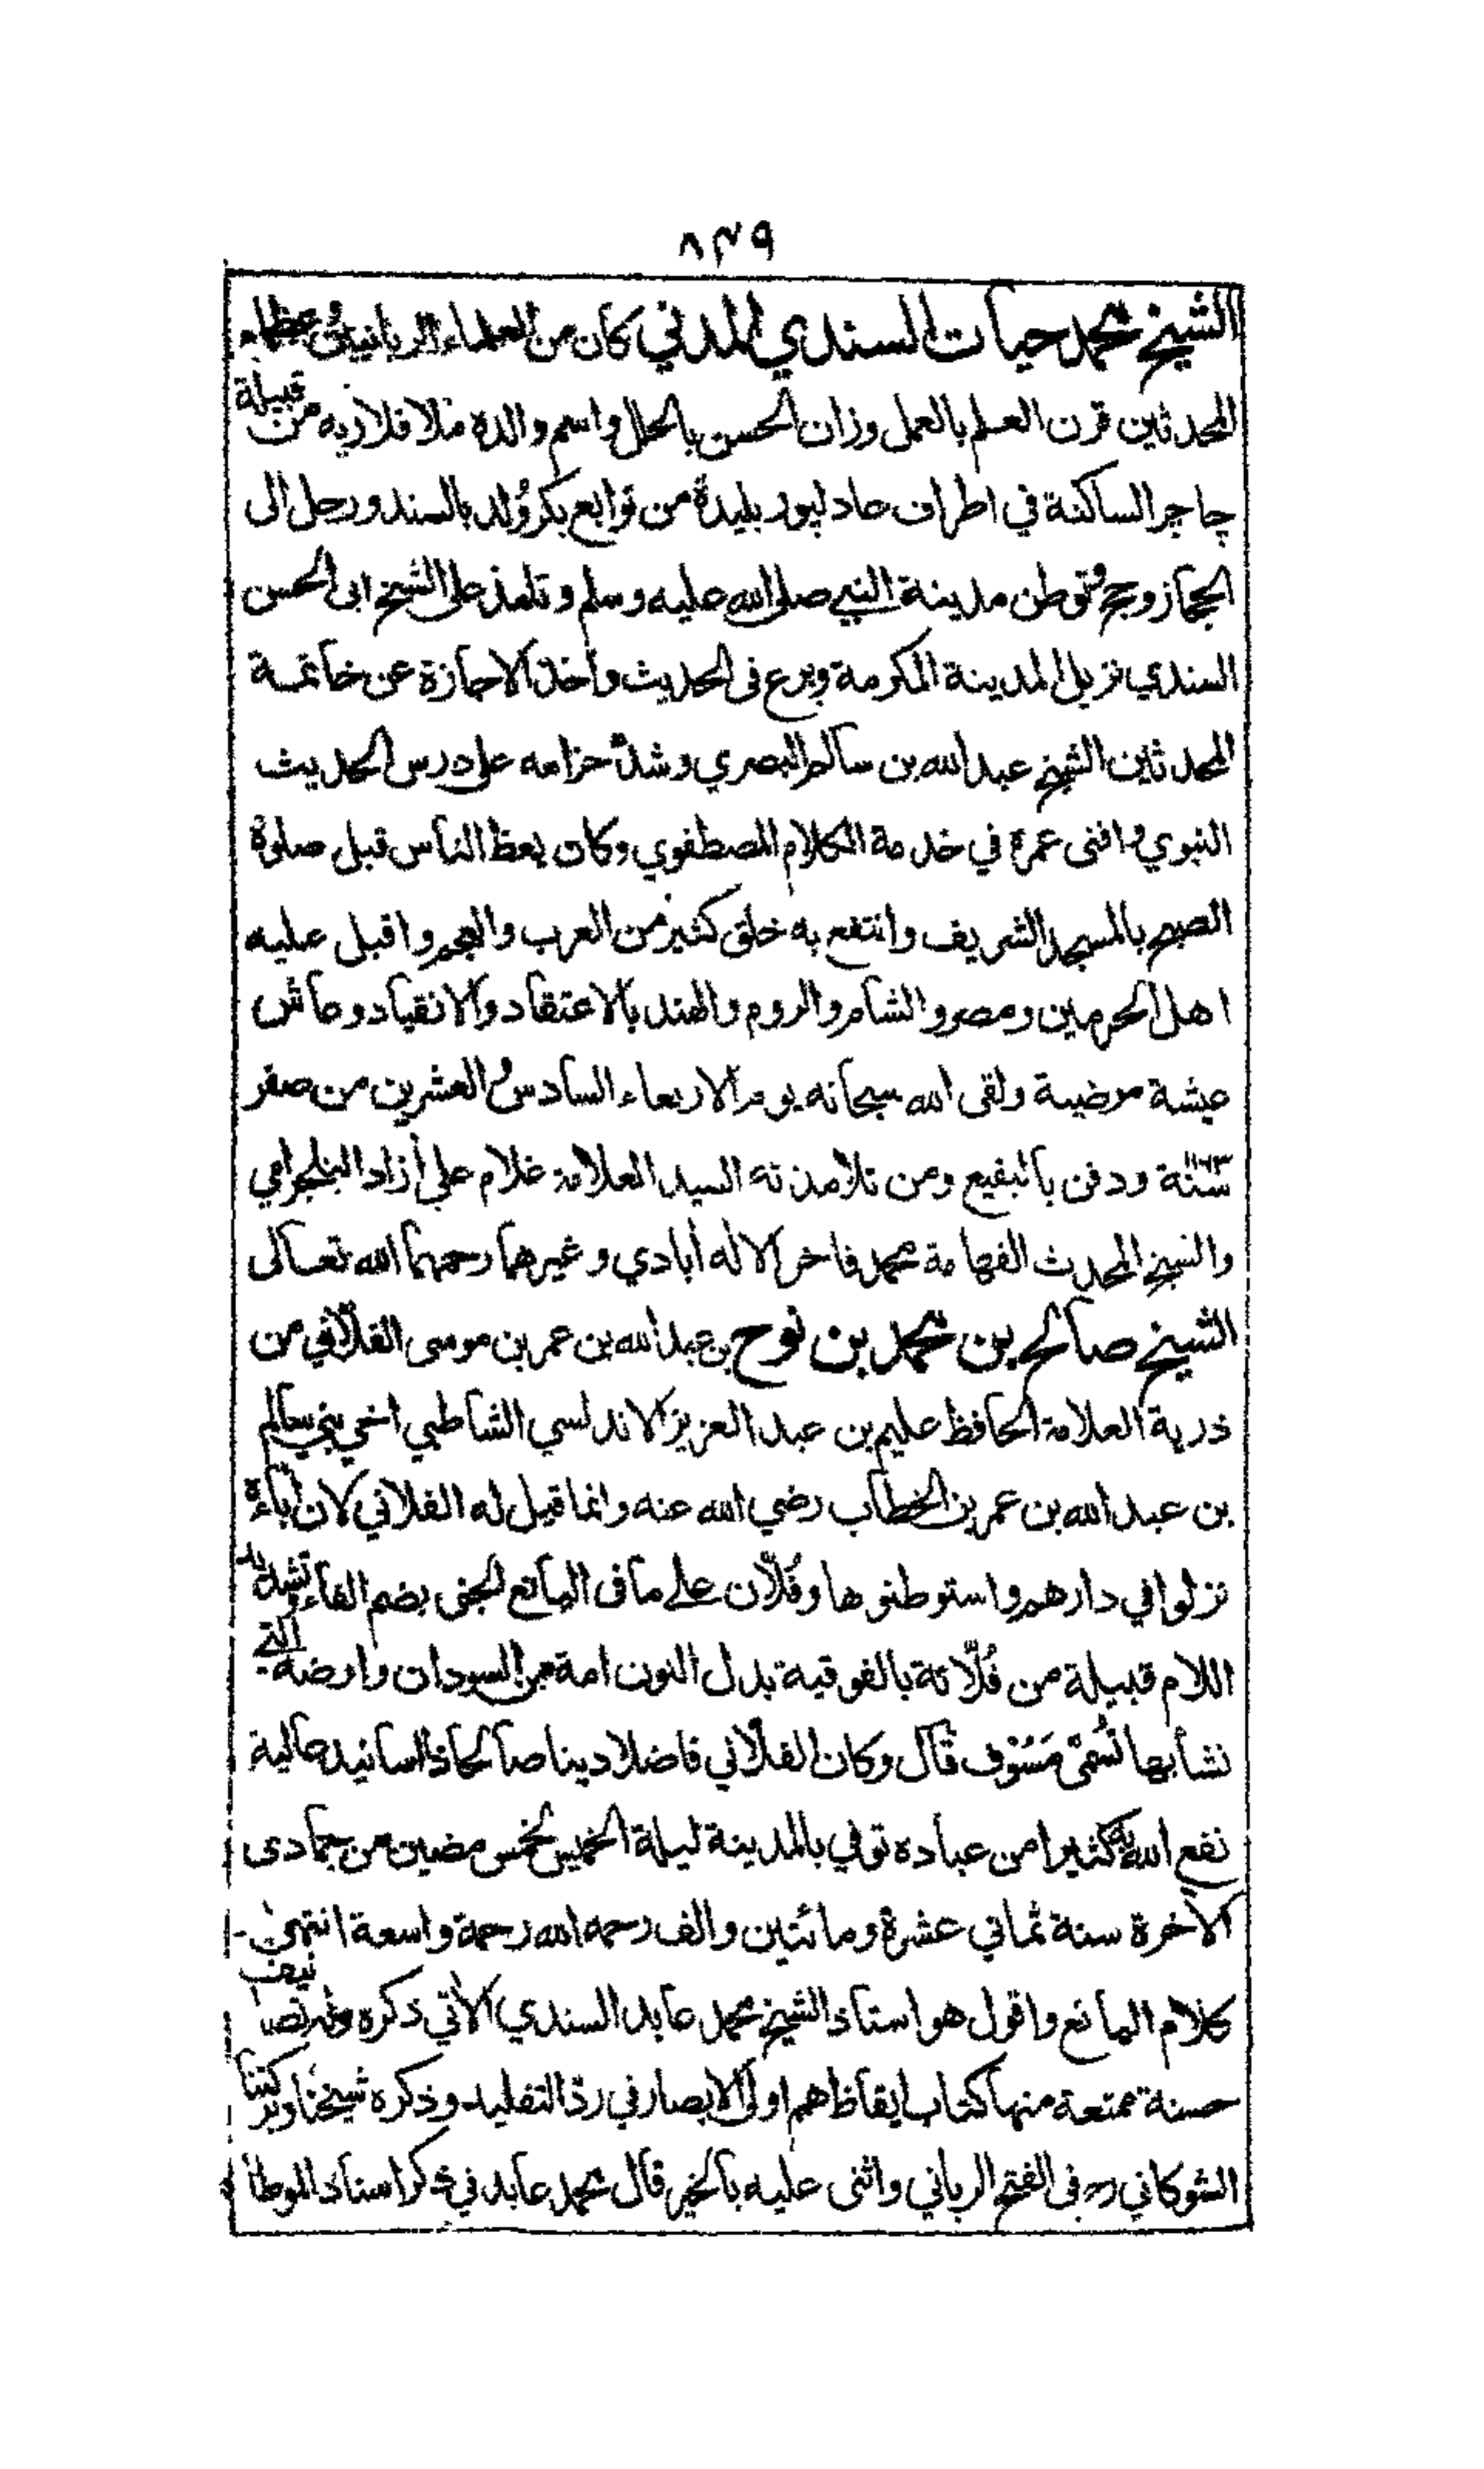 ٨٣٩
الشيخ محمد حيات السندي المدني كان من العلماء الربانيين وعظماء
المحدثين قرن العلم بالعمل وزان الحسن بالحلل واسم والده ملا فلاريه من قبيلة
چاچر الساكنة في اطراف عادلپور بليدة من توابع بكر وُلد بالسند ورحل الى
الحجاز وحج وتوطن مدينة النبي صلى الله عليه وسلم وتلمذ على الشيخ ابى الحسن
السندي نزيل المدينة المكرمة وبرع فى الحديث واخذ الاجازة عن خاتمة
المحدثين الشيخ عبد الله بن سالم البصري وشدّ حزامه على درس الحديث
النبوي وافنى عمره في خدمة الكلام المصطفوي وكان يعظ الناس قبل صلوة
الصبح بالمسجد الشريف وانتفع به خلق كثير من العرب والعجم واقبل عليه
اهل الحرمين ومصر والشام والروم والهند بالاعتقاد والانقياد وعاش
عيشة مرضية ولقى الله سبحانه يوم الاربعاء السادس والعشرين من صفر
سنة ١١٦٣ ودفن بالبقيع ومن تلامذته السيد العلامة غلام علي أزاد البلجرامي
والشيخ المحدث الفهامة محمد فاخر الاله أبادي وغيرهما رحمهما الله تعالى
الشيخ صالح بن محمد بن نوح بن عبد الله بن عمر بن موسى الفلّاني من
ذرية العلامة الحافظ عليم بن عبد العزيز الاندلسي الشاطبي اخي بني سالم
بن عبد الله بن عمر بن الخطاب رضي الله عنه وانما قيل له الفلاني لان أباءه
نزلوا في دارهم واستوطنوها وفُلّان على ما فى اليانع الجنى بضم الفاء وتشديد
اللام قبيلة من فُلّاتة بالفوقية بدل النون امة من السودان وارضه التي
نشأ بها تُسمّى مَسّوف قال وكان الفلّاني فاضلا دينا صالحا ذا اسانيد عالية
نفع الله به كثيرا من عباده توفي بالمدينة ليلة الخميس لخمس مضين من جمادى
الأخرة سنة ثماني عشرة ومائتين والف رحمه الله رحمة واسعة انتهى
كلام اليانع واقول هو استاذ الشيخ محمد عابد السندي الأتي ذكره وله تصانيف
حسنة ممتعة منها كتاب ايقاظ همم اولى الابصار في ردّ التقليد وذكره شيخنا وبركتنا
الشوكاني رح فى الفتح الرباني واثنى عليه بالخير قال محمد عابد في ذكر اسناد الموطا